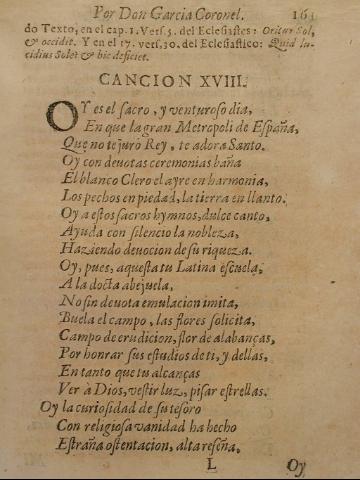 Por Don Garcia Coronel. 161
do Texto, en el cap. 1. Vers. 5. del Eclesiastes: Oritur Sol,
& occidit. Y en el 17. vers. 30. del Eclesiastico: Quid lu-
cidius Sole? & hic deficiet.
CANCION XVIII.
OY es el sacro, y venturoso dia,
En que la gran Metropoli de España,
Que no te jurò Rey, te adora Santo.
Oy con devotas ceremonias baña
El blanco Clero el ayre en harmonia,
Los pechos en piedad, la tierra en llanto.
Oy a estos sacros hymnos, dulce canto,
Ayuda con silencio la nobleza,
Haziendo devocion de su riqueza.
Oy, pues, aquesta tu Latina escuela,
A la docta abejuela,
No sin devota emulacion imita,
Buela el campo, las flores solicita,
Campo de erudicion, flor de alabanças,
Por honrar sus estudios de ti, y dellas,
En tanto que tu alcanças
Ver à Dios, vestir luz, pisar estrellas.
Oy la curiosidad de su tesoro
Con religiosa vanidad ha hecho
Estraña ostentacion, alta reseña,
L Oy